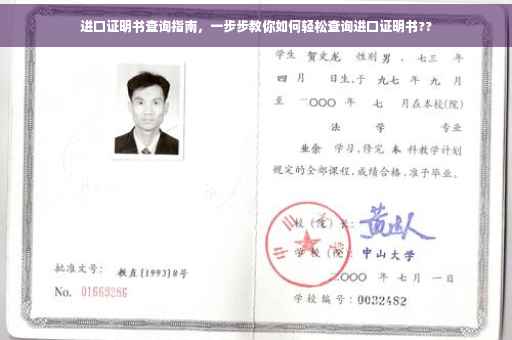 进口证明书查询指南，一步步教你如何轻松查询进口证明书??
学生 贺文龙 性别 男，七三 年
四 月 日生，于 九七 年 九 月
至 二〇〇〇 年 七 月在本校(院)
法 学 专业
业余 学习，修完 本 科教学计划
规定的全部课程，成绩合格，准予毕业。
校(院)长：
学校(院)：中山大学
二〇〇〇 年 七 月 一 日
学校编号：0032482
批准文号：教直[1993]8号
No. 01669286